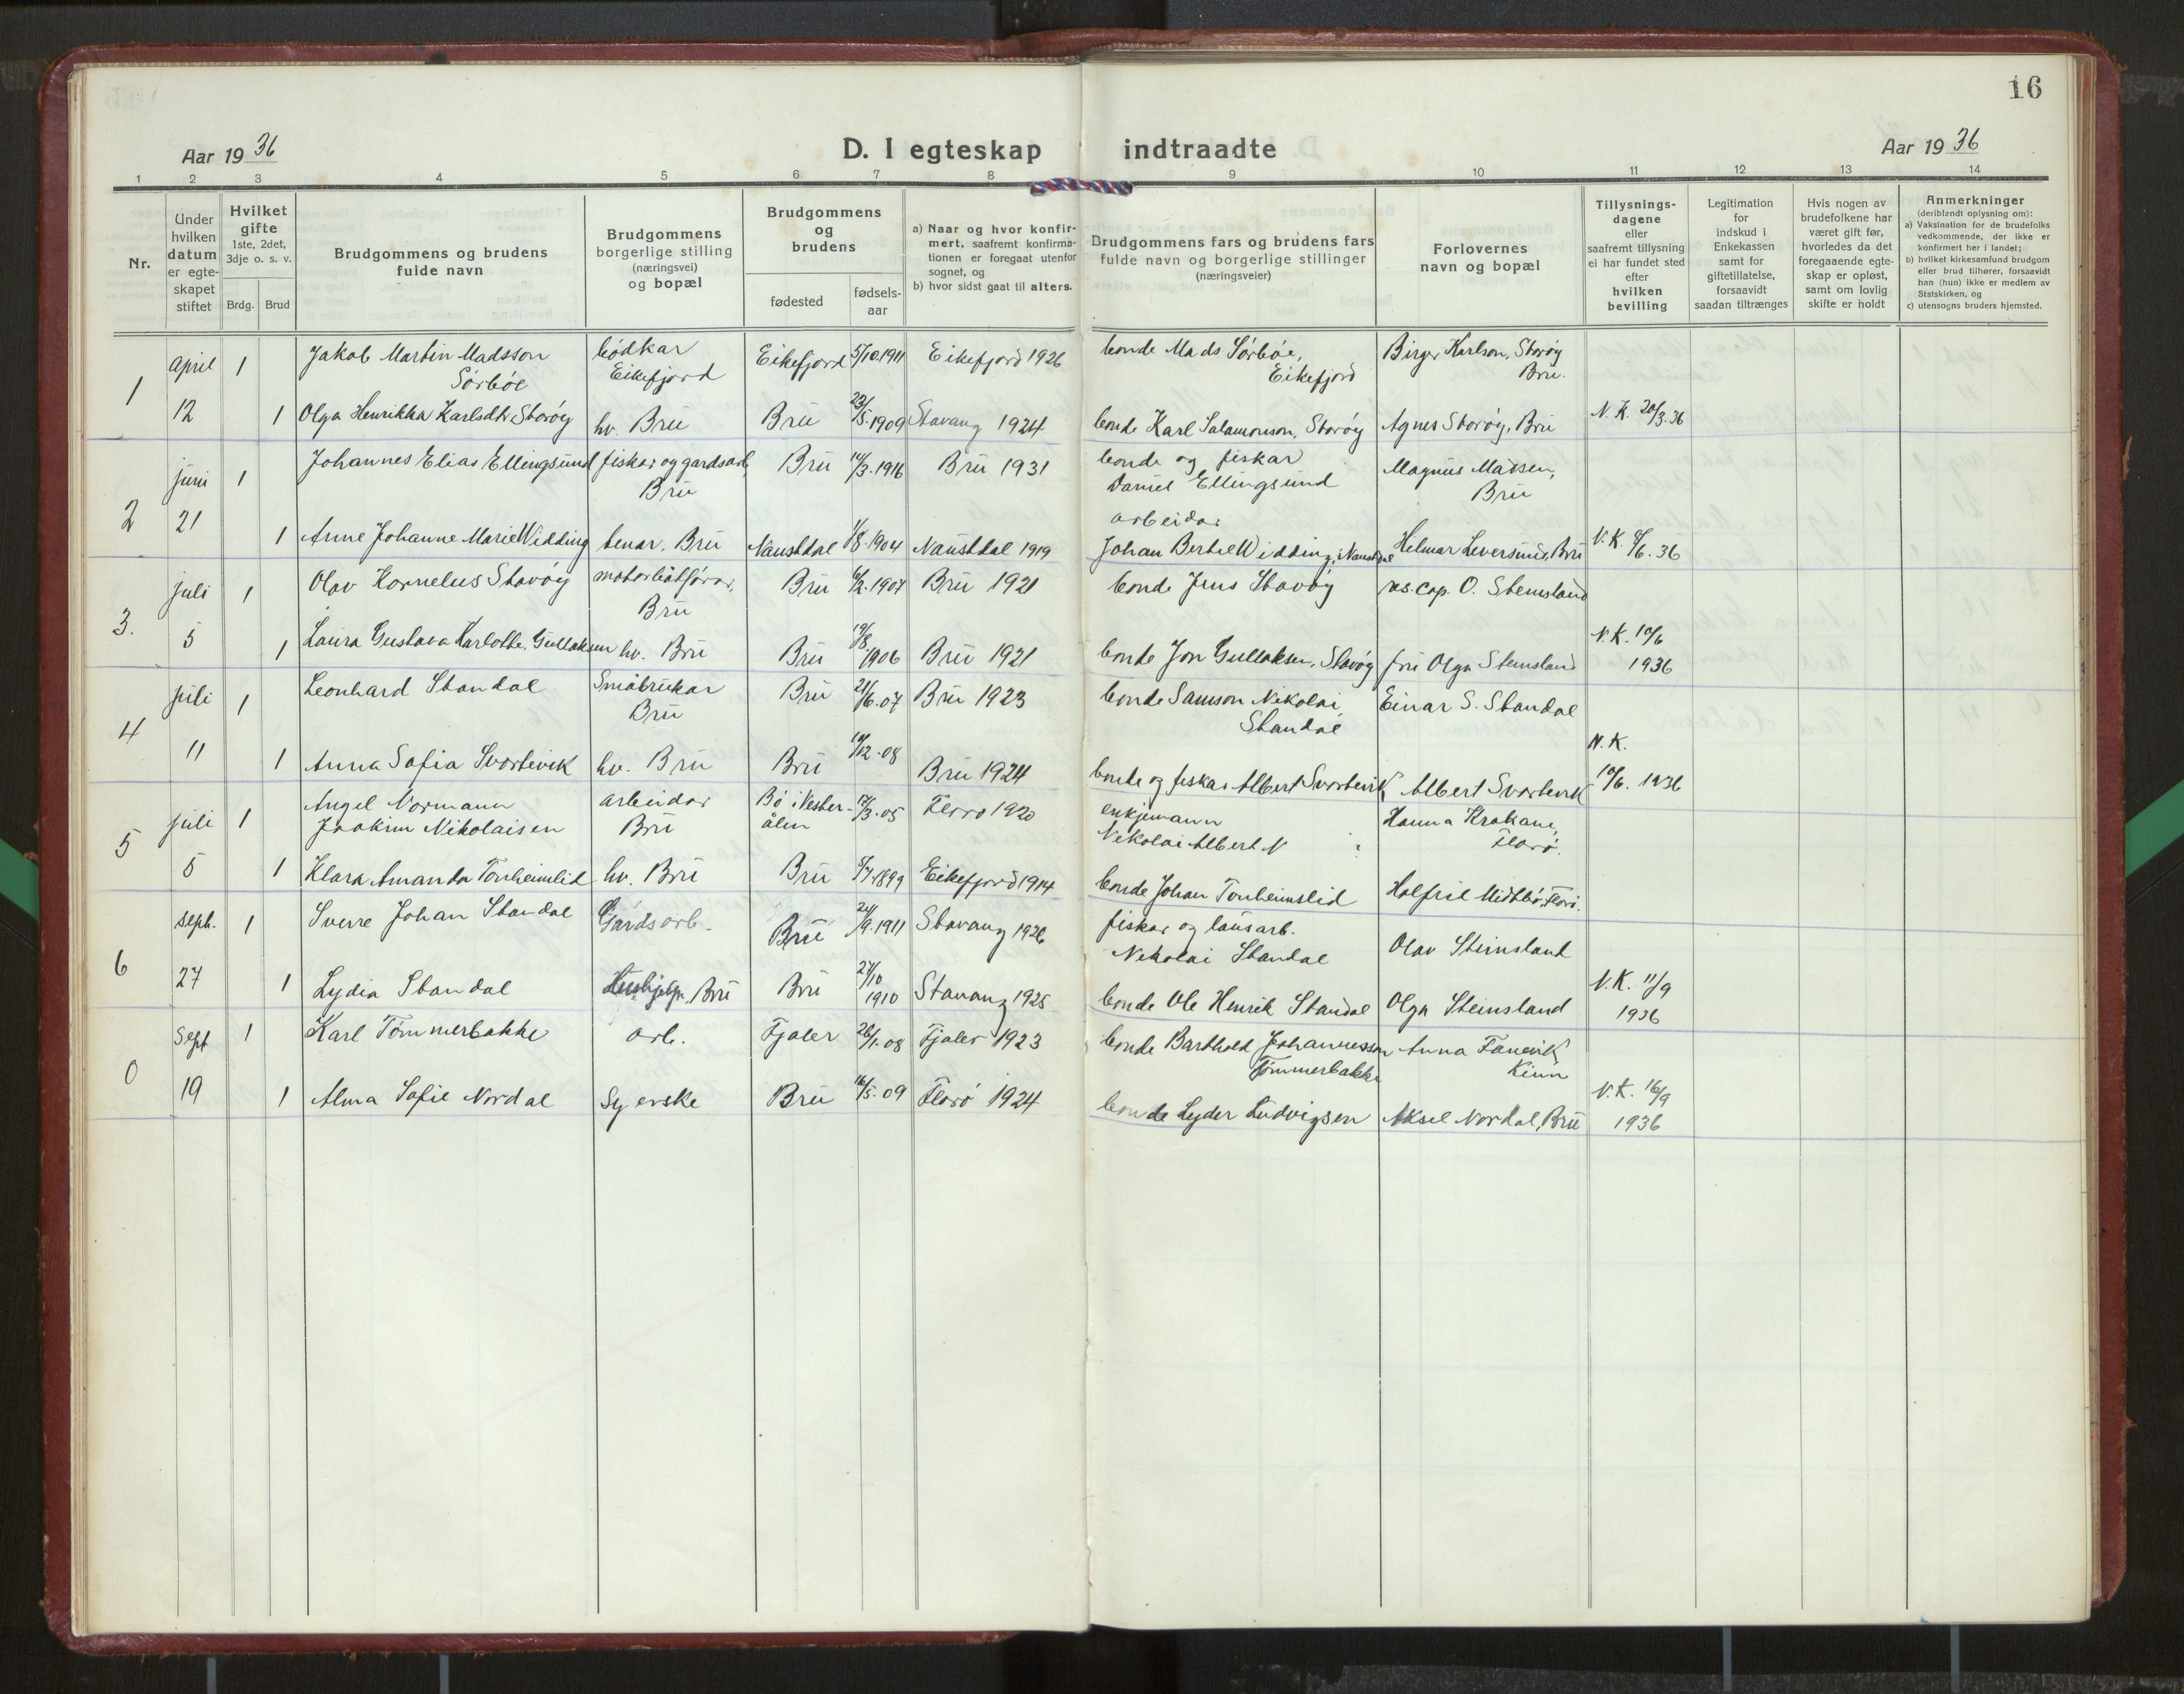 16
Aar 1936
D. I egteskap indtraadte
Aar 1936
1 2 3 4 5 6 7 8 9 10 11 12 13 14
Nr.
Under
hvilken
datum
er egte-
skapet
stiftet
Hvilket
gifte
1ste, 2det,
3dje o. s. v.
Brdg. Brud
Brudgommens og brudens
fulde navn
Brudgommens
borgerlige stilling
(næringsvei)
og bopæl
Brudgommens
og
brudens
fødested
fødsels-
aar
a) Naar og hvor konfir-
mert, saafremt konfirma-
tionen er foregaat utenfor
sognet, og
b) hvor sidst gaat til alters.
Brudgommens fars og brudens fars
fulde navn og borgerlige stillinger
(næringsveier)
Forlovernes
navn og bopæl
Tillysnings-
dagene
eller
saafremt tillysning
ei har fundet sted
efter
hvilken
bevilling
Legitimation
for
indskud i
Enkekassen
samt for
giftetillatelse,
forsaavidt
saadan tiltrænges
Hvis nogen av
brudefolkene har
været gift før,
hvorledes da det
foregaaende egte-
skap er opløst,
samt om lovlig
skifte er holdt
Anmerkninger
(deriblandt oplysning om):
a) Vaksination for de brudefolks
vedkommende, der ikke er
konfirmert her i landet;
b) hvilket kirkesamfund brudgom
eller brud tilhører, forsaavidt
han (hun) ikke er medlem av
Statskirken, og
c) utensogns bruders hjemsted.
1 april 1 Jakob Martin Madsson bödkar Eikefjord 5/10 1911 Eikefjord 1926 bonde Mads Sörböe, Birger Karlson, Storöy
Sörböe Eikefjord Eikefjord Bru.
12 1 Olga Henrikka Karlsdtr Storöy hv. Bru Bru 23/5.1909 Stavang 1924 bonde Karl Salamonson, Storöy Agnes Storöy, Bru N. K. 20/3.36
2 juni 1 Johannes Elias Ellingsund fiskar og gardsarb, Bru 14/3.1916 Bru 1931 bonde og fiskar Magnus Madsen,
Bru Daniel Ellingsund Bru
21 arbeidar
1 Anne Johanne Marie Widding tenar, Bru Naustdal 1/8.1904 Naustdal 1919 Johan Bertel Widding, Naustdal Helmar Leversund, Bru N. K. 6/6. 36
3. juli 1 Olav Kornelus Stavöy motorbåtförar, Bru 6/2.1907 Bru 1921 bonde Jens Stavöy res. cap. O. Stemsland
Bru
5 1 Laura Gustava Karlotte Gullaksen hv. Bru Bru 19/8 1906 Bru 1921 bonde Jon Gullaksen, Stavöy fru Olga Stemsland N. K. 10/6
1936
4 juli 1 Leonhard Standal Småbrukar Bru 21/6.07 Bru 1923 bonde Samson Nikolai Einar S. Standal
Bru Standal
11 1 Anna Sofia Svortevik hv. Bru Bru 19/12.08 Bru 1924 bonde og fiskar Albert Svortevik Albert Svortevik N. K.
10/6. 1936
5 juli 1 Angel Normann arbeidar Bö i Vester- 17/3.05 Floro 1920 enkjemann Hanna Krokane,
Joakim Nikolaisen Bru ålen Nikolai Albert N Florö.
5 1 Klara Amanda Tonheimlid hv. Bru Bru 5/7.1899 Eikefjord 1914 bonde Johan Tonheimslid Halfrid Midtbö, Florö.
6 sept. 1 Sverre Johan Standal Gardsarb. Bru 24/9.1911 Stavang 1926 fiskar og lausarb. Olav Steinsland
Nikolai Standal
27 1 Lydia Standal Hushjelp, Bru Bru 27/10 1910 Stavang 1925 bonde Ole Henrik Standal Olga Steinsland N. K. 11/9
1936
0 sept 1 Karl Tömmerbakke arb. Fjaler 26/1.08 Fjaler 1923 bonde Barthold Johannesson Anna Fanevik
Tömmerbakke Kinn
19 1 Alma Sofie Nordal Syerske Bru 16/5.09 Florö 1924 bonde Lyder Ludvigsen Aksel Nordal, Bru N. K. 16/9
1936